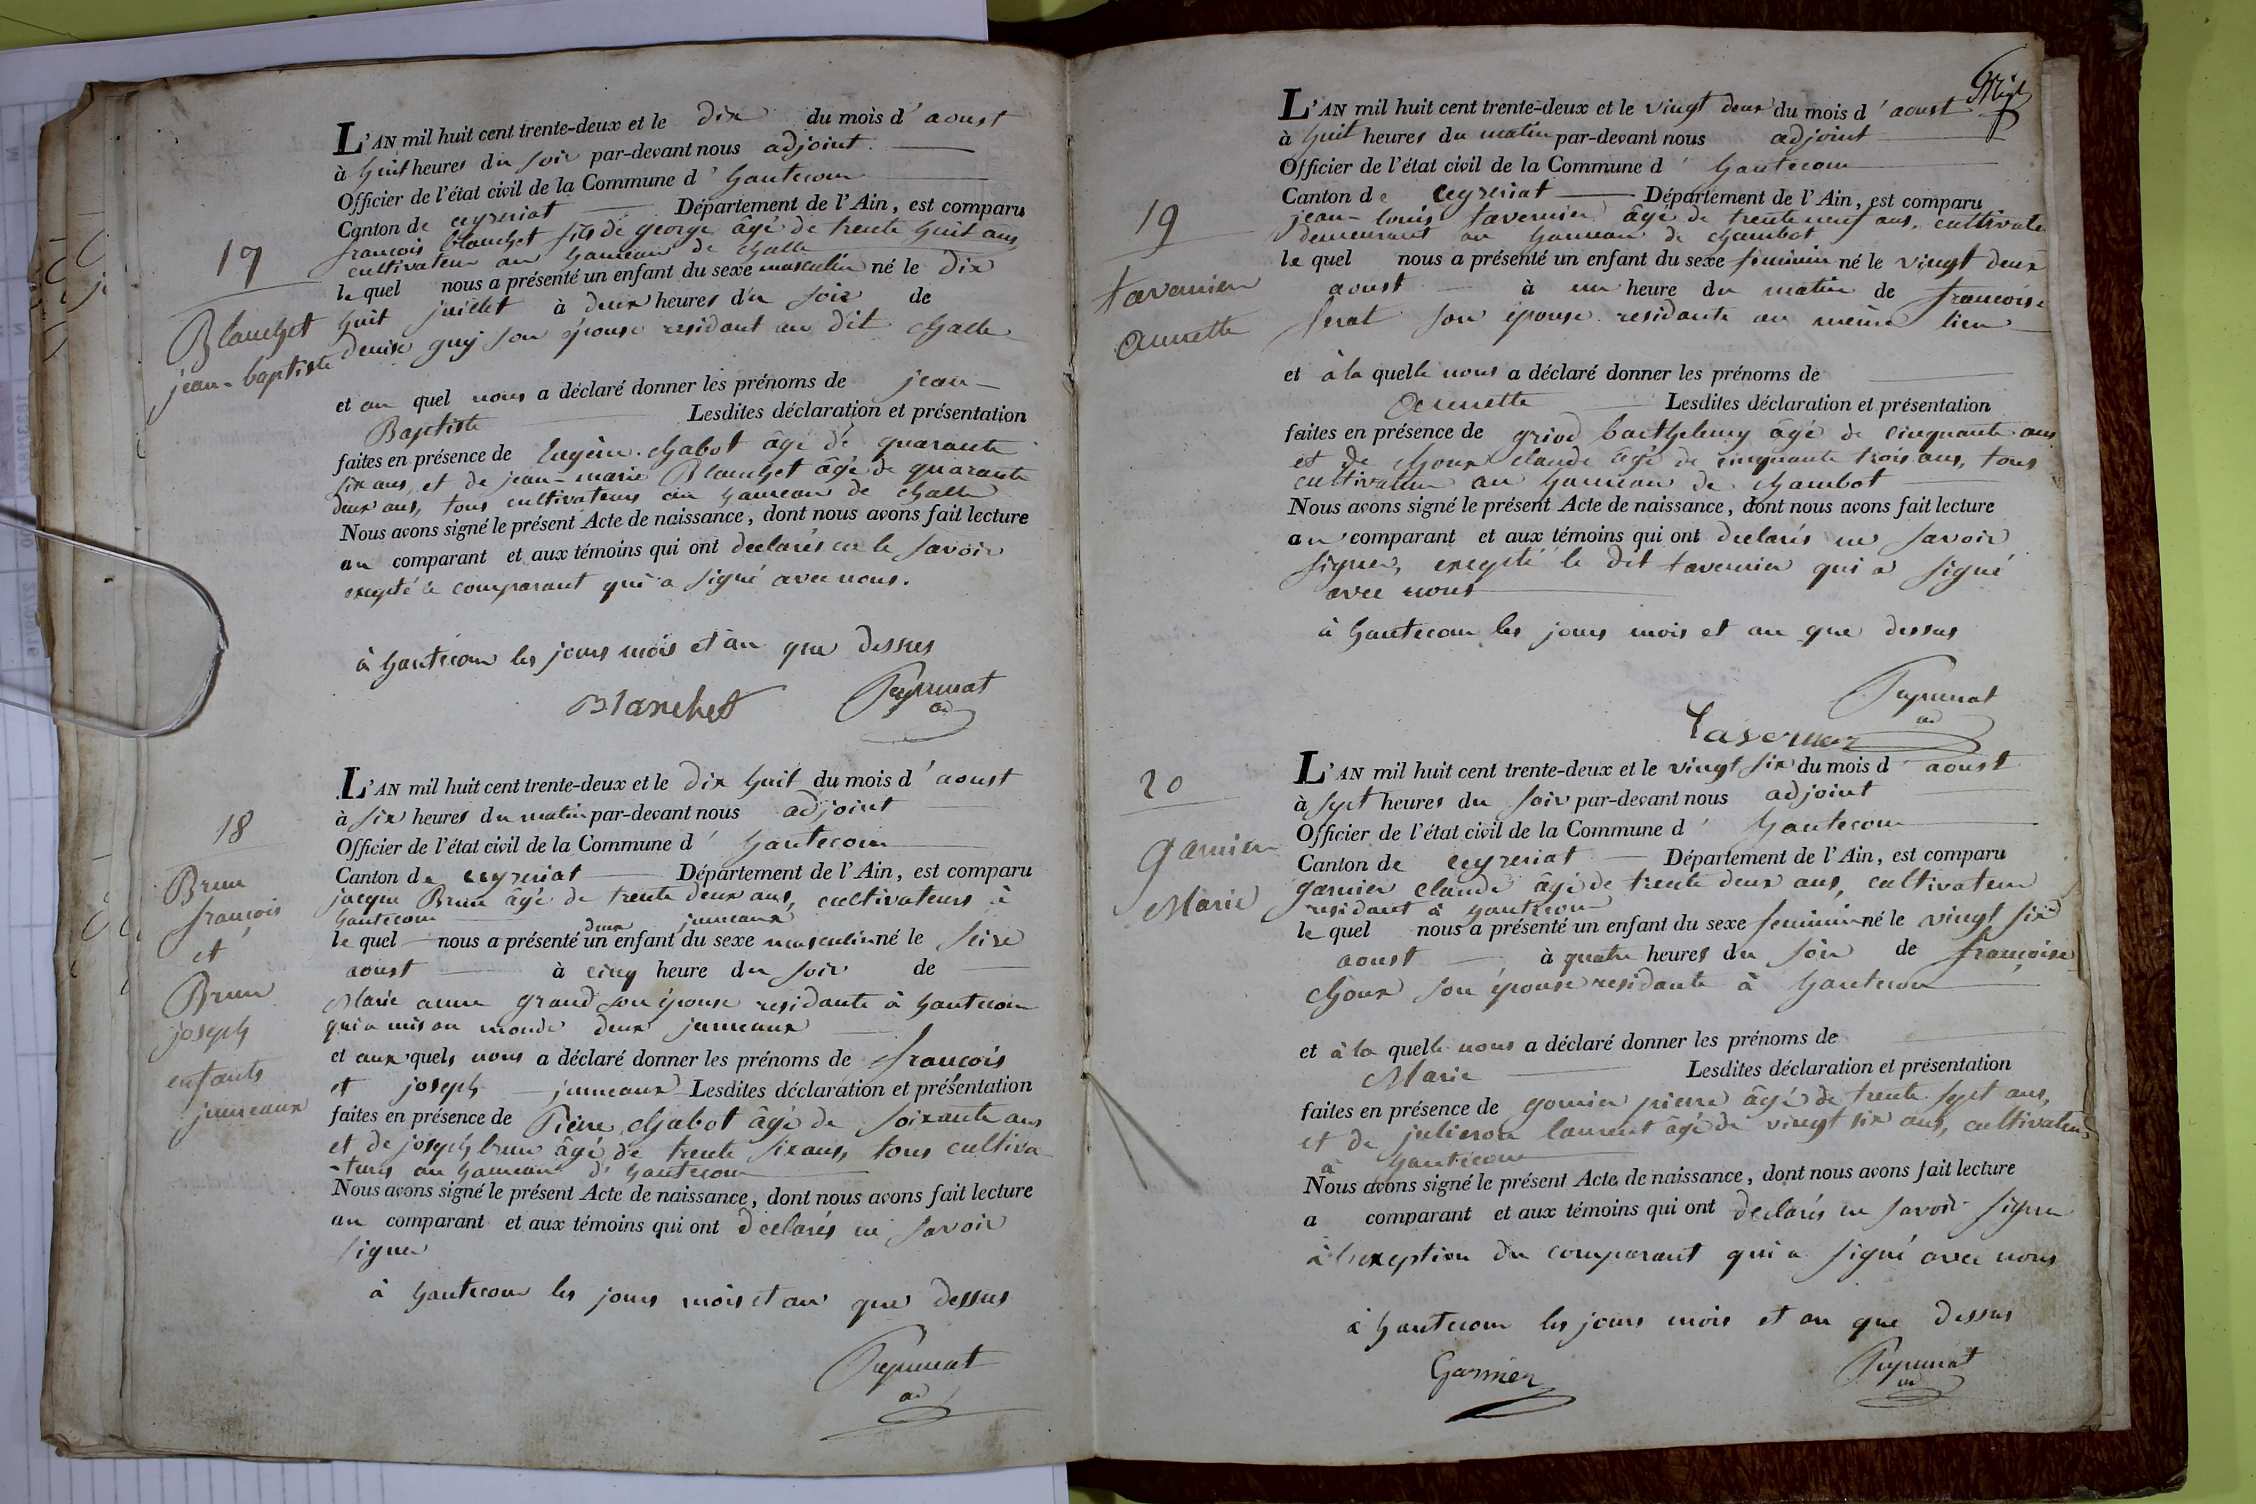 17
Blanchet
jean-baptiste
L'AN mil huit cent trente-deux et le dix du mois d'aoust
à huit heures du soir par-devant nous adjoint
Officier de l'état civil de la Commune d'hautecour
Canton de ceyzeriat Département de l'Ain, est comparu
francois blanchet fils de george âgé de trente huit ans
cultivateur au hameau de challe
le quel nous a présenté un enfant du sexe masculin né le dix
huit juillet à deux heures du soir de
denise guy son épouse residant au dit challe
et au quel nous a déclaré donner les prénoms de jean-
Baptiste Lesdites déclaration et présentation
faites en présence de chabot âgé de quarante
six ans, et de jean-marie Blanchet âgé de quarante
deux ans, tous cultivateurs au hameau de challe
Nous avons signé le présent Acte de naissance, dont nous avons fait lecture
au comparant et aux témoins qui ont declarés ne le savoir
excepté le comparant qui a signé avec nous.
à hautecour les jours mois et an que dessus
Blanchet
ad
18
Brun
françois
et
Brun
joseph
enfants
jumeaux
L'AN mil huit cent trente-deux et le dix huit du mois d'aoust
à six heures du matin par-devant nous adjoint
Officier de l'état civil de la Commune d'hautecour
Canton de ceyzeriat Département de l'Ain, est comparu
jacque Brun âgé de trente deux ans, cultivateurs à
hautecour deux jumeaux
le quel nous a présenté un enfant du sexe masculin né le seize
aoust à cinq heure du soir de
Marie anne grand son épouse residante à hautecour
qui a mis au monde deux jumeaux
et aux quels nous a déclaré donner les prénoms de françois
et joseph jumeaux Lesdites déclaration et présentation
faites en présence de Pierre chabot âgé de soixante ans
et de joseph brun âgé de trente six ans, tous cultiva
-teurs au hameau d'hautecour
Nous avons signé le présent Acte de naissance, dont nous avons fait lecture
au comparant et aux témoins qui ont declarés ne savoir
signer
à hautecour les jours mois et an que dessus
ad
19
tavernier
Annette
L'AN mil huit cent trente-deux et le vingt deux du mois d'aoust
à huit heures du matin par-devant nous adjoint
Officier de l'état civil de la Commune d'hautecour
Canton de ceyzeriat Département de l'Ain, est comparu
jean-louis tavernier âgé de trente neuf ans, cultivate
demeurant au hameau de chambot
le quel nous a présenté un enfant du sexe feminin né le vingt deux
aoust à un heure du matin de francoise
son épouse residante au même lieu
et à la quelle nous a déclaré donner les prénoms de
Annette Lesdites déclaration et présentation
faites en présence de griod barthelemy âgé de cinquante ans
et de choux claude âgé de cinquante trois ans, tous
cultivateur au hameau de chambot
Nous avons signé le présent Acte de naissance, dont nous avons fait lecture
au comparant et aux témoins qui ont declarés ne savoir
signer, excepté le dit tavernier qui a signé
avec nous
à hautecour les jours mois et an que dessus
ad
Tavernier
20
garnier
Marie
L'AN mil huit cent trente-deux et le vingt six du mois d'aoust
à sept heures du soir par-devant nous adjoint
Officier de l'état civil de la Commune d'hautecour
Canton de ceyzeriat Département de l'Ain, est comparu
garnier claude âgé de trente deux ans, cultivateur
residant à hautecour
le quel nous a présenté un enfant du sexe feminin né le vingt six
aoust à quatre heures du soir de françoise
choux son épouse residante à hautecour
et à la quelle nous a déclaré donner les prénoms de
Marie Lesdites déclaration et présentation
faites en présence de pierre âgé de trente sept ans,
et de laurent âgé de vingt six ans, cultivateurs
à hautecour
Nous avons signé le présent Acte de naissance, dont nous avons fait lecture
a comparant et aux témoins qui ont declarés ne savoir signer
à l'exception du comparant qui a signé avec nous
à hautecour les jours mois et an que dessus
Garnier
ad